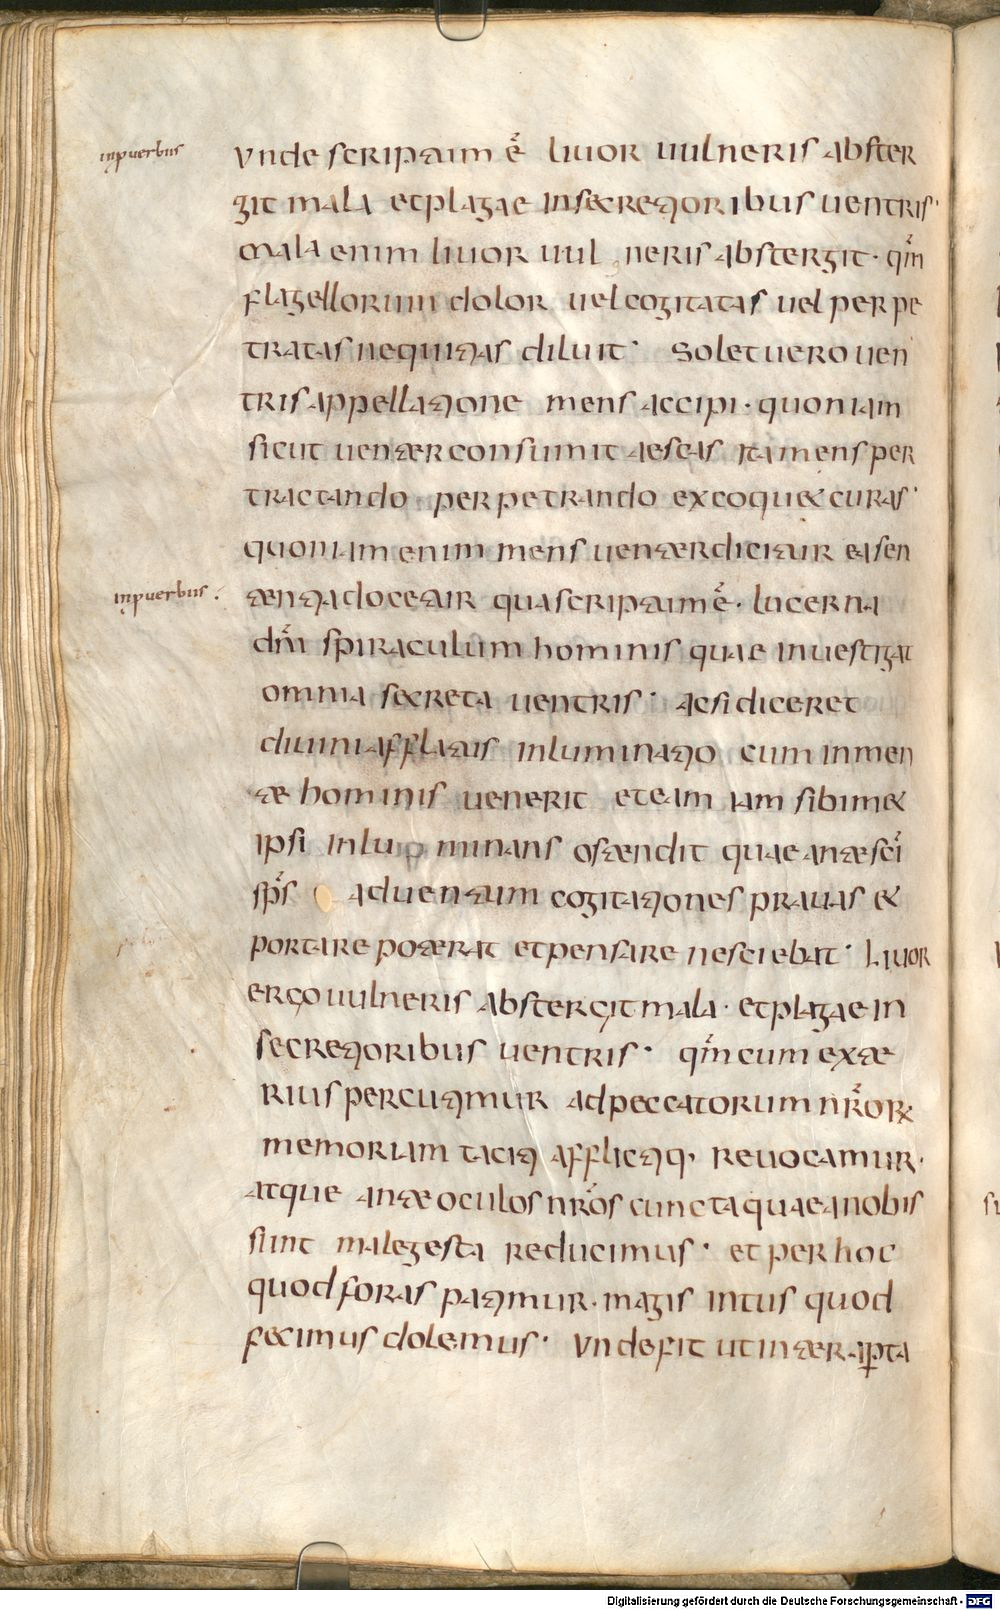 inpuerbus
Unde scriptum ē liuor uulneris abster
git mala et plagae in secretioribus uentris·
mala enim liuor uul neris abstergit· qm̄
flagellorum dolor uel cogitatas uel perpe
tratas nequitias diluit· Solet uero uen
tris appellatione mens accipi· quoniam
sicut uenter consumit aescas ita mens per
tractando perpetrando excoquet curas·
quoniam enim mens uenter dicitur ea sen
inpuerbus·
tentia docetur qua scriptum ē· lucerna
dni̅ spiraculum hominis quae inuestigat
omnia secreta uentris· acsi diceret
diuini afflatus inluminatio cum in men
te hominis uenerit et eam iam sibimet
ipsi inlu minans ostendit quae ante sc̄i
sp̄s aduentum cogitationes prauas et
portare poterat et pensare nesciebat· Liuor
ergo uulneris abstergit mala· et plagae in
secretioribus uentris· qm̄ cum exte
rius percutimur ad peccatorum nr̄orꝝ
memoriam taciti afflictiq· reuocamur·
atque ante oculos nr̄os cuncta quae a nobis
sunt male gesta reducimus· et per hoc
quod foras patimur· magis intus quod
fecimus dolemus· Unde fit ut inter aperta
Digitalisierung gefördert durch die Deutsche Forschungsgemeinschaft - DFG